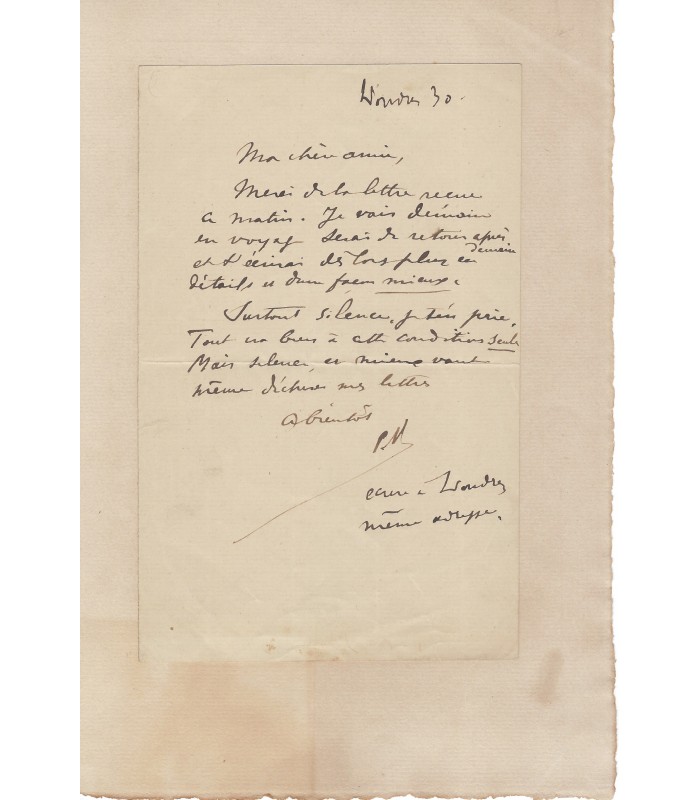 Londres 30.
Ma chère amie,
Merci de ta lettre reçue
ce matin. Je vais demain
en voyage serai de retour après
demain
et t'écrirai dès lors plus en
détails et d'une façon mieux.
Surtout silence, je t'en prie,
Tout ira bien à cette condition seule
Mais silence, et mieux vaut
même déchirer mes lettres
A bientôt
P.V.
écrire à Londres
même adresse.